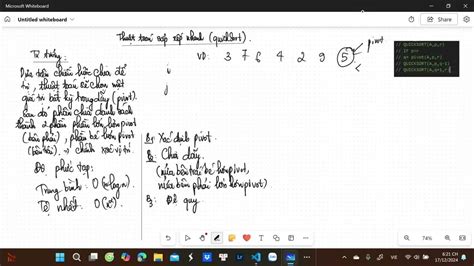 Microsoft Whiteboard
Untitled whiteboard
Thuật toán sắp xếp nhanh (quickSort).
Ý tưởng:
Dựa trên chiến lược chia để
trị, thuật toán sẽ chọn một
giá trị bất kỳ trong dãy (pivot).
Sau đó phân chia danh sách
thành 2 phần: phần lớn hơn pivot
(bên phải), phần bé hơn pivot
(bên trái)
Độ phức tạp:
Trung bình: O(nlogn)
Tệ nhất: O(n²)
VD: 3 7 6 4 2 9 5
pivot
i
j
B1: Xác định pivot.
B2: Chia dãy.
(nửa bên trái bé hơn pivot,
nửa bên phải lớn hơn pivot)
B3: Đệ quy
// QUICKSORT(A,p,r)
// QUICKSORT(A,p,q-1)
// QUICKSORT(A,q+1,r)
74%
VIE
6:21 CH
17/12/2024